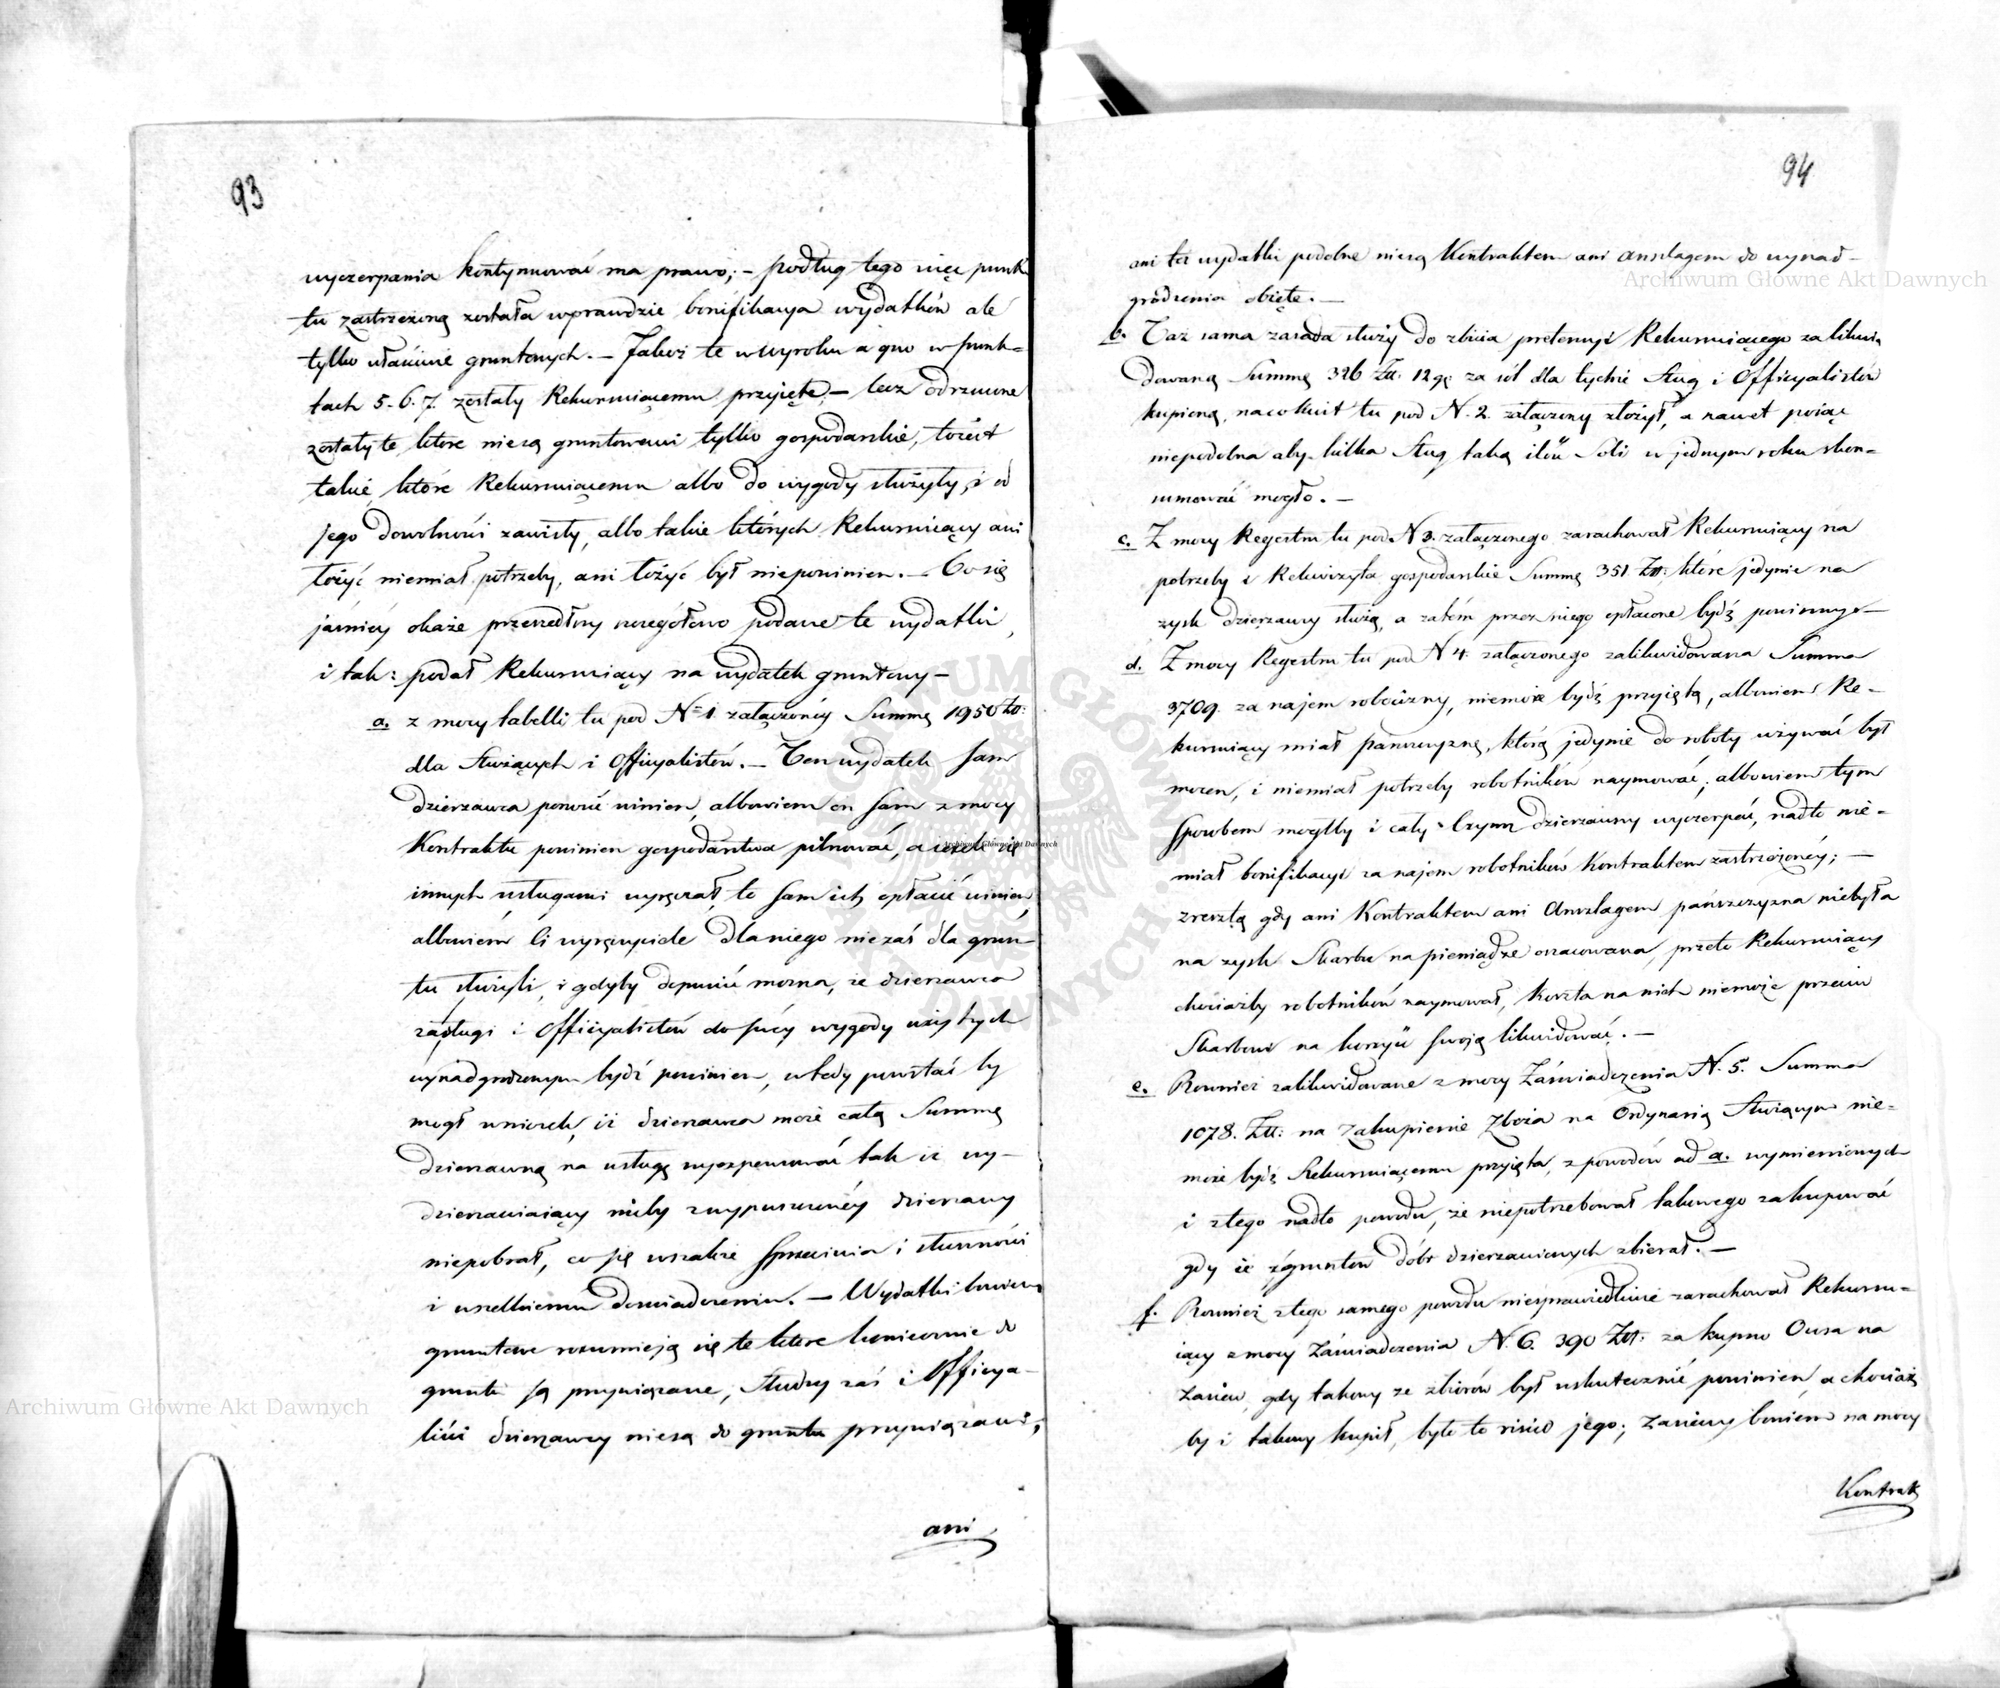 93
wyczerpania kontynuować ma prawo; – podług tego więc punk
tu zastrzeżoną została wprawdzie bonifikacya wydatków ale
tylko właściwie gruntowych. – Jakoż te w wyroku a quo w punk=
tach 5. 6. 7. zostały Rekurruiącemu przyięte, – lecz odrzucone
zostały te które niesą gruntowemi tylko gospodarskie, toiest
takie, które Rekurruiącemu albo do wygody służyły, i od
jego dowolności zawisły, albo takie których Rekurruiący ani
łożyć niemiał potrzeby, ani łożyć był niepowinien. – Co się
jaśniey okaże przeszedłszy szczegółowo podane te wydatki,
i tak: podał Rekurruiący na wydatek gruntowy –
a. z mocy tabelli tu pod Nº 1. załączoney Summę 1950 Zł:
dla Służących i Officyalistów. – Ten wydatek sam
dzierżawca ponosić winien, albowiem on sam z mocy
Kontraktu powinien gospodarstwa pilnować, a ieżeli się
innych usługami wyręczał, to sam ich opłacić winien
albowiem ci wyręczyciele dla niego niezaś dla grun=
tu służyli, i gdyby dopuścić można, że dzierżawca
zasługi i Officyalistów do swey wygody użytych
wynadgrodzonym bydź powinien, wtedy powstać by
mogł wniosek, iż dzierżawca może całą Summę
dzierżawną na usługę wyexpensować tak iż wy=
dzierżawiaiący niciby z wypuszczoney dzierżawy
niepobrał, co się wszakże sprzeciwia i słuszności
i wszelkiemu doswiadczeniu. – Wydatki bowiem
gruntowe rozumieją się te które koniecznie do
gruntu są przywiązane, Słudzy zaś i Officya=
liści dzierżawcy niesą do gruntu przywiązani;
ani
94
ani też wydatki podobne niesą Kontraktem ani anszlagem do wynad=
grodzenia obięte. –
b. Taż sama zasada służy do zbicia pretensyi Rekurruiącego za likwi=
dowaną Summę 326 Złł. 12 gr za sól dla tychże sług i Officyalistów
kupioną, na co kwit tu pod N. 2. załączony złożył, a nawet poiąć
niepodobna aby kilka sług taką ilość Soli w jednym roku skon=
sumować mogło. –
c. Z mocy Regestru tu pod N 3. załączonego zarachował Rekurruiący na
potrzeby i Rekwizyta gospodarskie Summę 351 Złł: które jedynie na
zysk dzierżawcy służą, a zatém przez niego opłacone bydź powinny –
d. Z mocy Regestru tu pod N 4. załączonego zalikwidowana Summa
3709. za najem robocizny, niemoże bydź przyiętą, albowiem Re=
kurruiący miał pańszczyznę, którą jedynie do roboty używać był
mocen, i niemiał potrzeby robotników naymować; albowiem tym
sposobem mogłby i cały czynsz dzierżawny wyczerpać, nadto nie=
miał bonifikacyi za najem robotników Kontraktem zastrzeżoney; –
zresztą gdy ani Kontraktem ani Anszlagem pańszczyzna niebyła
na zysk Skarbu na pieniądze oszacowana, przeto Rekurruiący
chociażby robotników naymował, koszta na nich niemoże przeciw
Skarbowi na korzyść swoją likwidować. –
e. Rownież zalikwidowane z mocy Zaświadczenia N. 5. Summa
1078. Złł: na Zakupienie Zboża na Ordynarią Służącym nie=
może bydź Rekurruiącemu przyięta, z powodów ad a. wymienionych
i z tego nadto powodu, że niepotrzebował takowego zakupować
gdy ie z gruntów dóbr dzierżawionych zbierał. –
f. Rownież z tego samego powodu niesprawiedliwie zarachował Rekurru=
iący z mocy Zaświadczenia N. 6. 390 Złł: za kupno Owsa na
Zasiew, gdy takowy ze zbiorów był uskutecznić powinien, a chociaż
by i takowy kupił, było to risico jego; Zasiewy bowiem na mocy
Kontrak
Archiwum Główne Akt Dawnych
Archiwum Główne Akt Dawnych
Archiwum Główne Akt Dawnych
ARCHIWUM GŁÓWNE AKT DAWNYCH